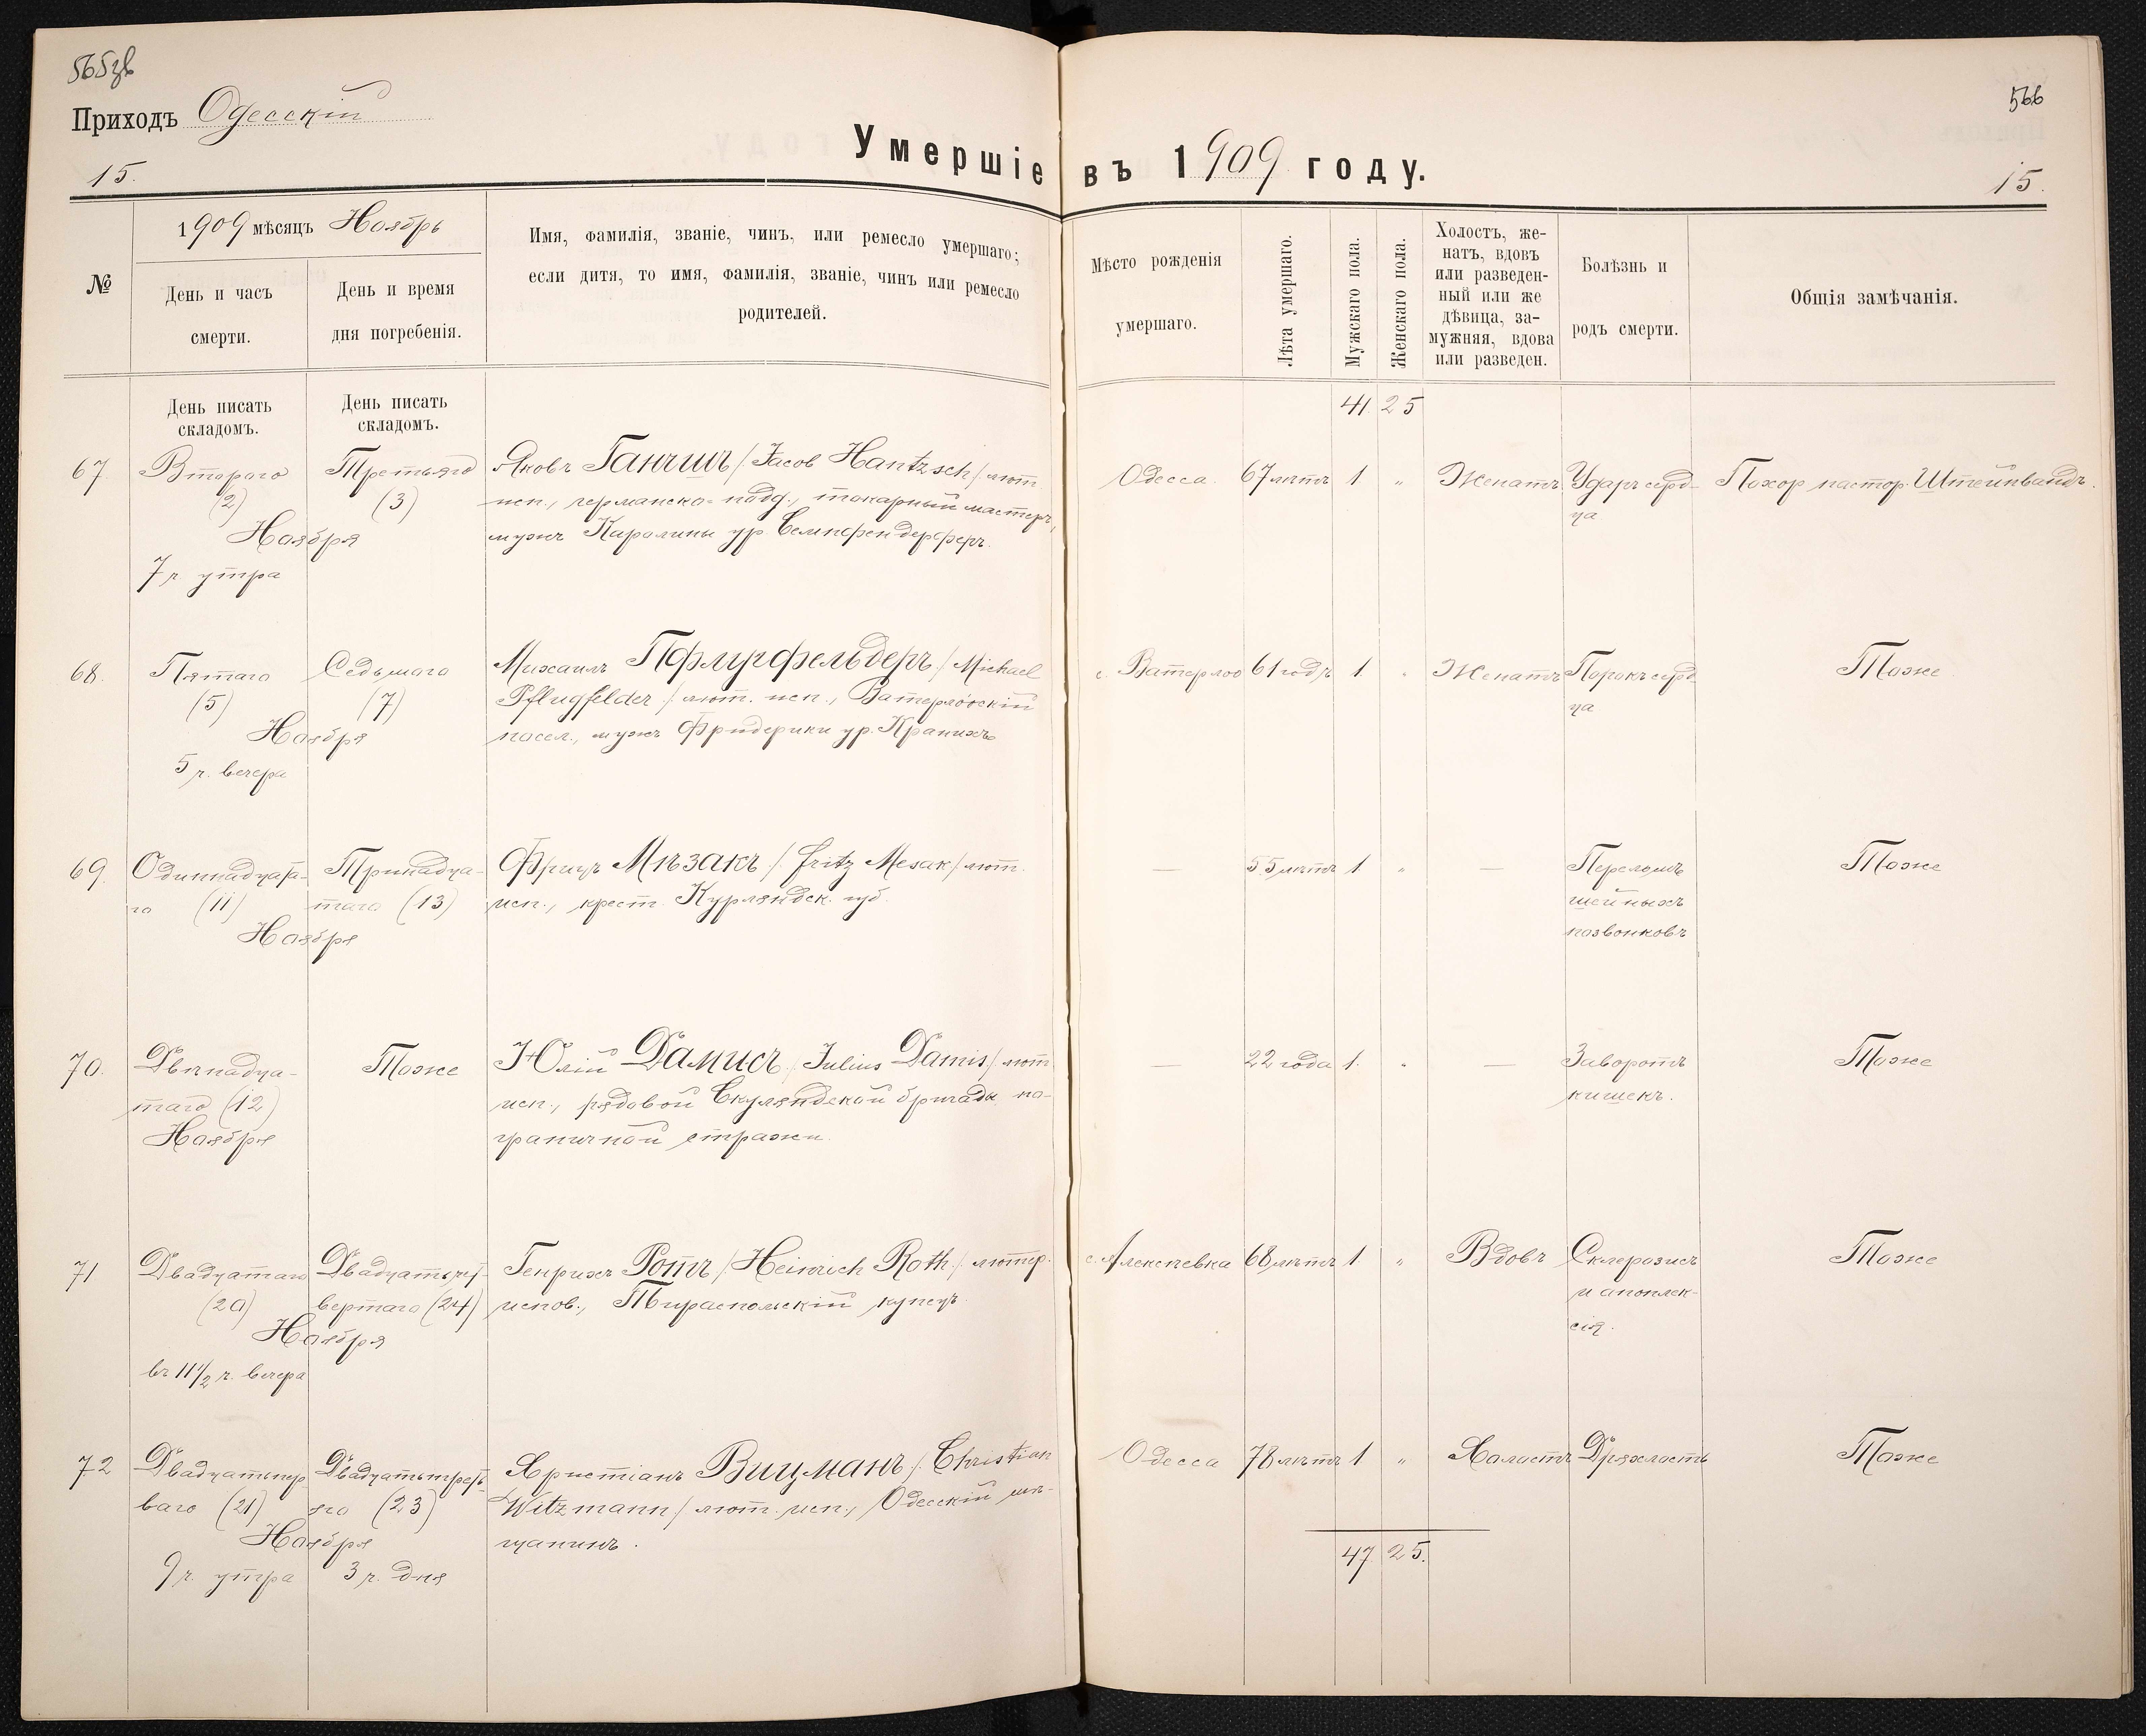 565 зв
566
Приходъ Одесскій
Умершіе въ 1909 году.
15.
15.
№
1909 мѣсяцъ Ноябрь
День и часъ
смерти.
День и время
дня погребенія.
Имя, фамилія, званіе, чинъ, или ремесло умершаго;
если дитя, то имя, фамилія, званіе, чинъ или ремесло
родителей.
Мѣсто рожденія
умершаго.
Лѣта умершаго.
Мужскаго пола.
Женскаго пола.
Холостъ, же-
натъ, вдовъ
или разведен-
ный или же
дѣвица, за-
мужняя, вдова
или разведен.
Болѣзнь и
родъ смерти.
Общія замѣчанія.
День писать
складомъ.
День писать
складомъ.
41 25
67
Второго
(2)
Третьяго
(3)
Ноября
7 ч. утра
Яковъ Ганчшъ /Jacob Hantzsch/ лют.
исп., германско-подд., токарный мастеръ,
мужъ Каролины ур.
Одесса.
67 лѣтъ
1.
"
Женатъ
Ударъ серд-
ца
Похор. пастор. Штейнвандъ.
68.
Пятаго
(5)
Седьмого
(7)
Ноября
5 ч. вечера
Михаилъ Пфлугфельдеръ /Michael
Pflugfelder/ лют. исп., Ватерлоскій
посел., мужъ Фридерики ур. Кранихъ
с. Ватерлоо
61 годъ
1.
"
Женатъ
Порокъ серд-
ца
Тоже
69.
Одиннадцата-
го (11)
Тринадца-
таго (13)
Ноября
Фрицъ Мѣзакъ /Fritz Mesak/ лют.
исп., крест. Курляндск. губ.
—
55 лѣтъ
1.
"
—
Переломъ
шейныхъ
позвонковъ
Тоже
70.
Двѣнадца-
таго (12)
Ноября
Тоже
Юлій Дамисъ /Julius Damis/ лют.
исп., рядовой Скулянской бригады по-
граничной стражи.
—
22 года
1.
"
—
Заворотъ
кишекъ.
Тоже
71
Двадцатаго
(20)
Двадцать чет-
вертаго (24)
Ноября
въ 11 1/2 ч. вечера
Генрихъ Ротъ /Heinrich Roth/ лютер.
испов., Тираспольскій купецъ
с. Алексѣевка
68 лѣтъ
1.
"
Вдовъ
Склерозисъ
и апоплек-
сія.
Тоже
72
Двадцать пер-
ваго (21)
Двадцать треть-
яго (23)
Ноября
9 ч. утра
3 ч. дня
Христіанъ Вицманъ /Christian
Witzmann/ лют. исп., Одесскій мѣ-
щанинъ.
Одесса
78 лѣтъ
1
"
Холостъ
Дряхлость
Тоже
47. 25.